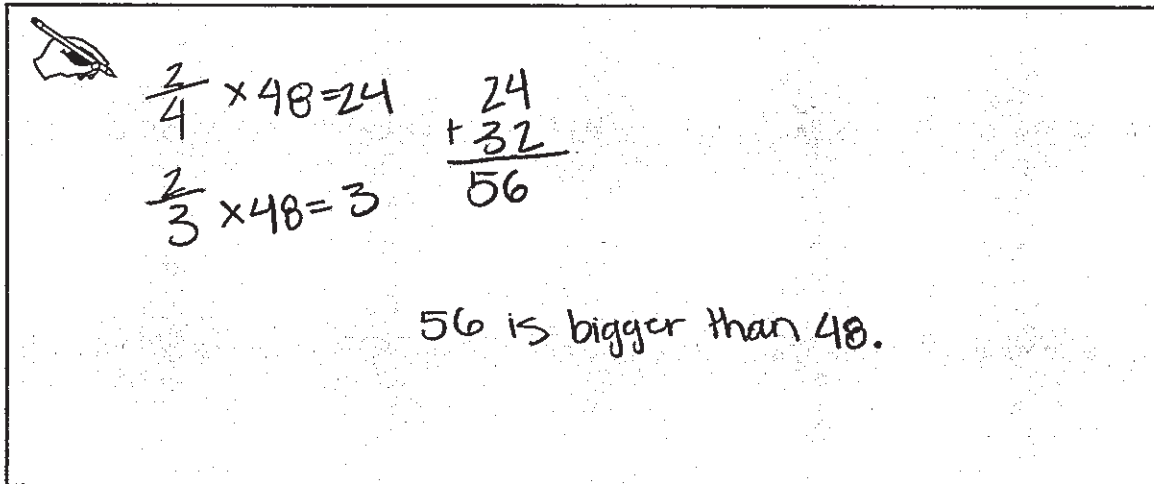 2/4 × 48 = 24
2/3 × 48 = 3
24
+ 32
56
56 is bigger than 48.